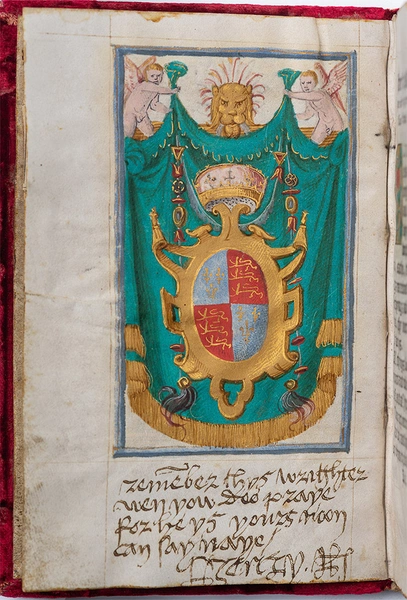 remēber thys wrighter
wen yow doo praye
for he ys yours noon
can say naye
Henry. R